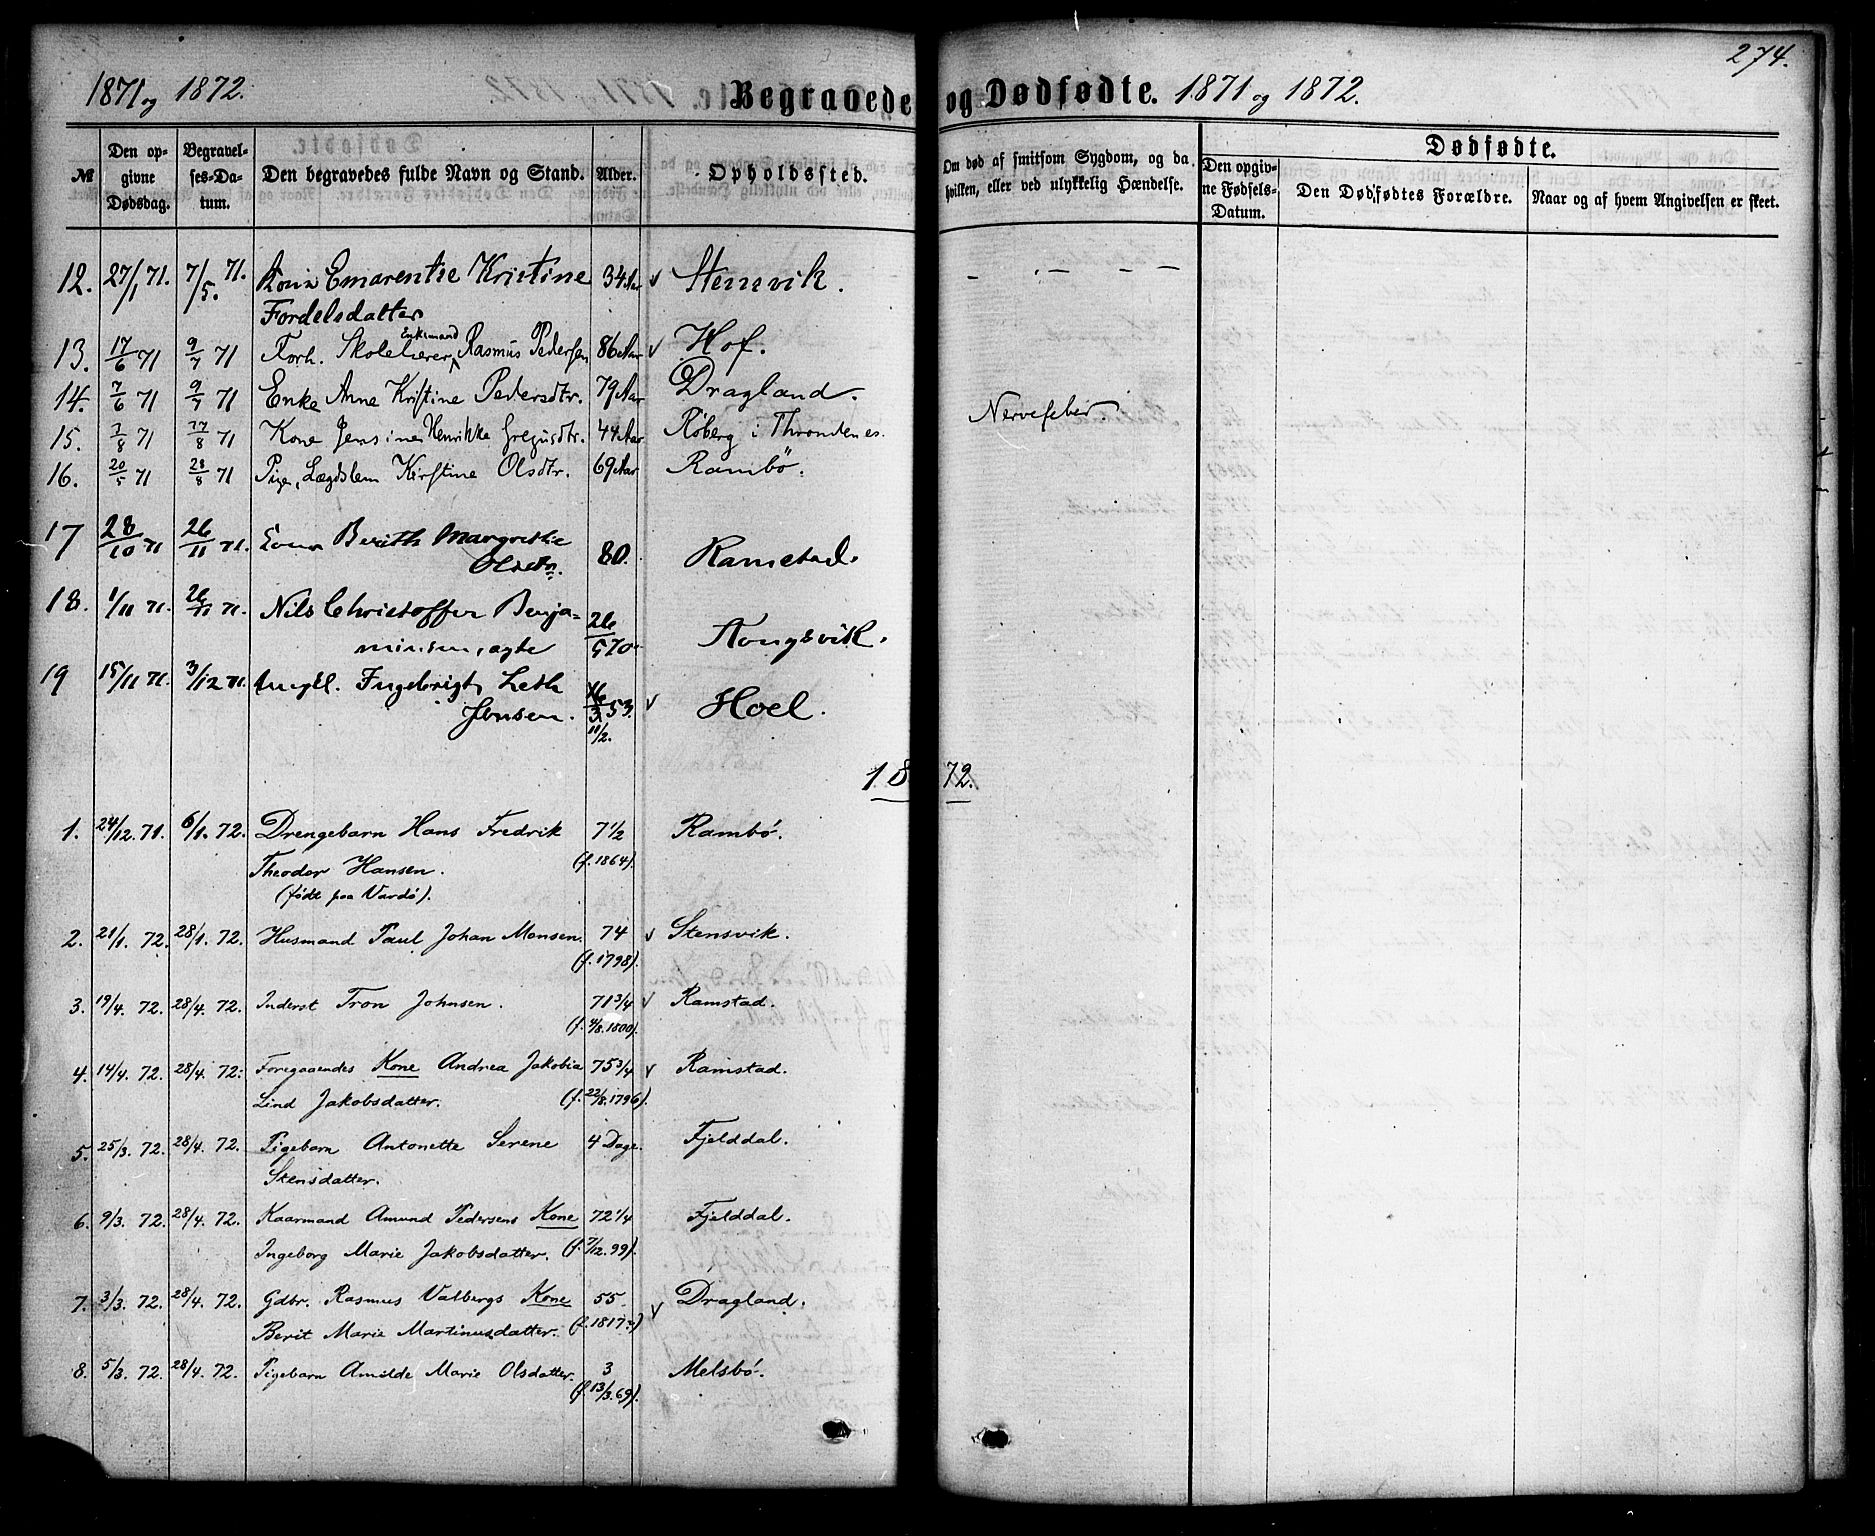 274.
1871 og 1872. Begravede og Dødfødte. 1871 og 1872.
Dødfødte.
№ Den opgivne Dødsdag. Begravelses-Datum. Den begravedes fulde Navn og Stand. Alder. Opholdssted. Om død af smitsom Sygdom, og da hvilken, eller ved ulykkelig Hændelse. Den opgivne Fødsels-Datum. Den Dødfødtes Forældre. Naar og af hvem Angivelsen er skeet.
12. 27/1 71. 7/5. 71. Kone Emarentse Kristine 34 Aar v Stensvik. - - - - -
Fordelsdatter
Enkemand
13. 17/6 71 9/7 71 Forh. Skolelærer, Rasmus Pedersen 86 Aar v Hof.
14. 7/6 71 9/7 71 Enke Anne Kristine Pedersdtr. 79 Aar Dragland.
15. 7/8 71 27/8 71 Kone Jensine Henrikke Gregusdtr. 44 Aar Røberg i Throndenes. Nervefeber.
16. 20/5 71 28/8 71 Pige, Lægdslem Kirstine Olsdtr. 69 Aar Rambö.
17 28/10 71 26/11 71. Berith Margrethe 80. Ramstad.
Olsdtr.
18. 1/11 71. 26/11 71. Nils Christoffer Benja-
minsen, ægte 26/5 70 Kongsvik.
19 15/11 71. 3/12 71. Ungkl. Ingebrigt Leth
Jensen. 53. v Hoel.
11/2.
1872.
1. 24/12. 71. 6/1. 72. Drengebarn Hans Fredrik 7 1/2 Rambø.
Theodor Hansen. (f. 1864).
(født paa Vardø).
2. 21/1. 72. 28/1. 72. Husmand Paul Johan Monsen. 74 v Stensvik.
(f. 1798).
3. 19/4. 72. 28/4. 72. Inderst Tron Johnsen. 71 3/4 v Ramstad.
(f. 4/8. 1800).
4. 14/4. 72. 28/4. 72. Foregaaendes Kone Andrea Jakobia 75 3/4 v Ramstad.
Lind Jakobsdatter. (f. 22/8. 1796).
5. 25/3. 72. 28/4. 72. Pigebarn Antonette Serene 4 Dage. Fjelddal.
Stensdatter.
6. 9/3. 72. 28/4. 72. Kaarmand Amund Pedersens Kone 72 1/4 Fjelddal.
Ingeborg Marie Jakobsdatter. (f. 7/12. 99).
7. 3/3. 72. 28/4. 72. Gdbr. Rasmus Valbergs Kone 55. v Dragland.
Berit Marie Martinusdatter. (f. 1817?)
8. 5/3. 72. 28/4. 72. Pigebarn Amilde Marie Olsdatter. 3 Melsbø.
(f. 13/3. 69).